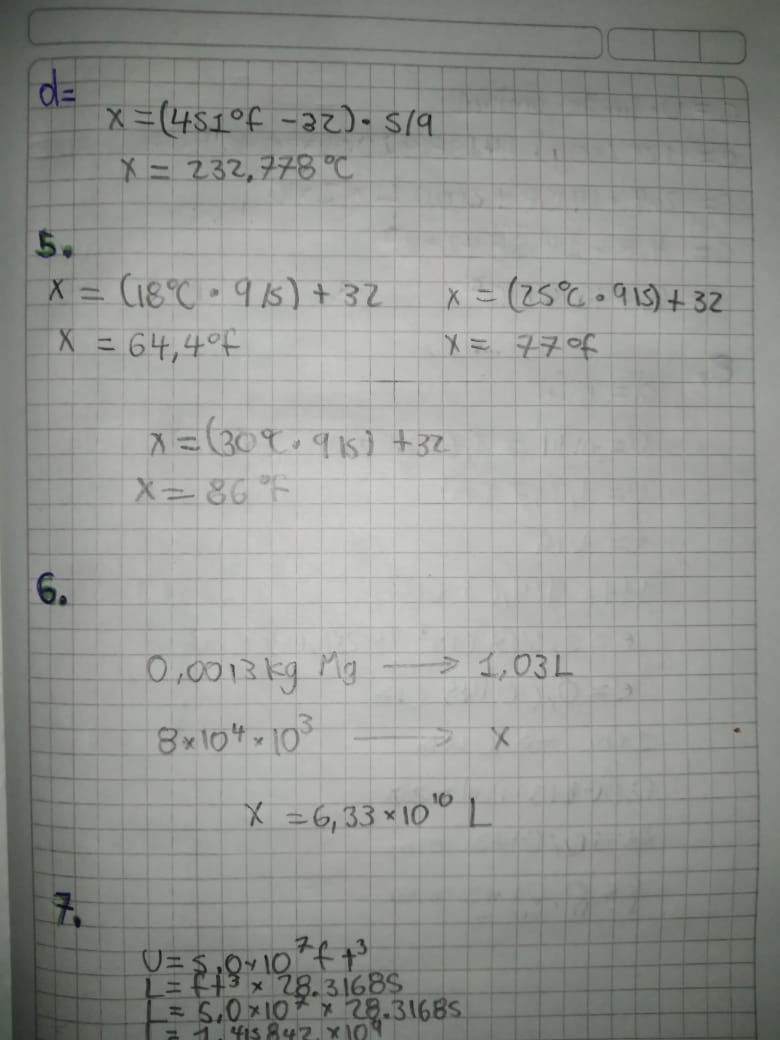 d=
x = (451°f - 32) • 5/9
x = 232,778°C
5.
x = (18°C • 9/5) + 32
x = 64,4°f
x = (25°C • 9/5) + 32
x = 77°f
x = (30°C • 9/5) + 32
x = 86°F
6.
0,0013 kg Mg → 1,03L
8×10⁴×10³ → x
x = 6,33×10¹⁰ L
7.
V = 5,0×10⁷ ft³
L = ft³ × 28.31685
L = 5,0×10⁷ × 28.31685
L = 1,415842×10⁹